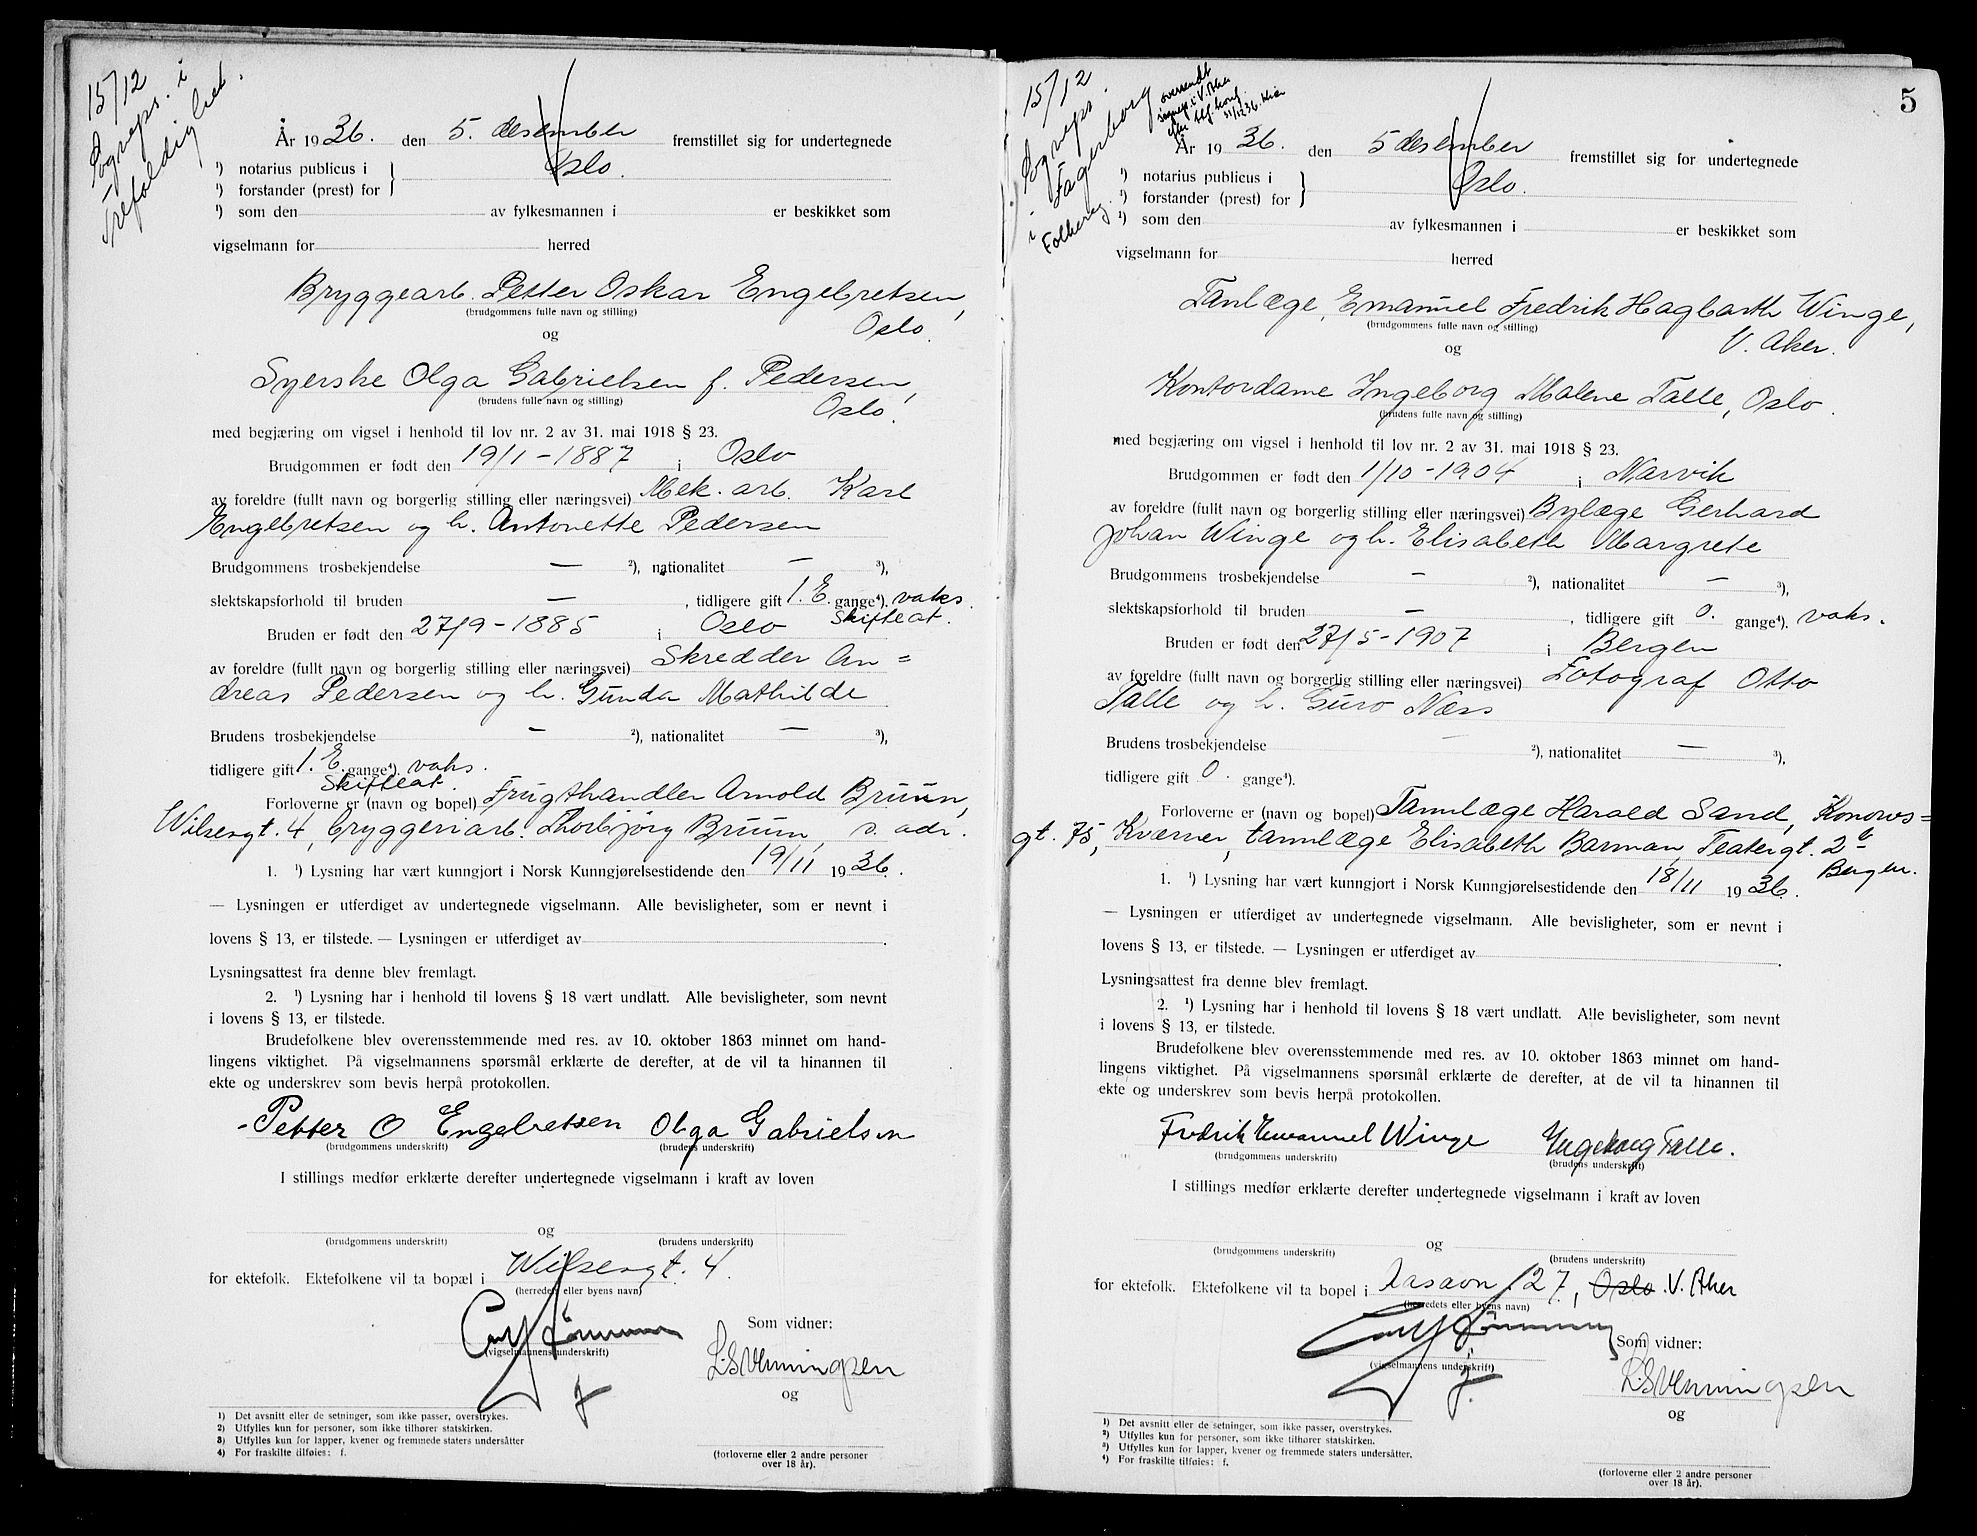 15/12
Sogneps. i
Trefoldighet.
År 1936. den 5. desember fremstillet sig for undertegnede
¹) notarius publicus i
Oslo.
¹) forstander (prest) for
¹) som den av fylkesmannen i er beskikket som
vigselmann for herred
Bryggearb. Petter Oskar Engebretsen,
(brudgommens fulle navn og stilling)
Oslo.
og
Syerske Olga Gabrielsen f. Pedersen,
(brudens fulle navn og stilling)
Oslo.
med begjæring om vigsel i henhold til lov nr. 2 av 31. mai 1918 § 23.
Brudgommen er født den 19/1-1887 i Oslo
av foreldre (fullt navn og borgerlig stilling eller næringsvei) Mek. arb. Karl
Engebretsen og h. Antonette Pedersen
Brudgommens trosbekjendelse — ²), nationalitet — ³),
slektskapsforhold til bruden — , tidligere gift 1. E. gange⁴). vaks.
Skifteat.
Bruden er født den 27/9-1885 i Oslo
av foreldre (fullt navn og borgerlig stilling eller næringsvei) Skredder An=
dreas Pedersen og h. Gunda Mathilde
Brudens trosbekjendelse — ²), nationalitet — ³),
tidligere gift 1. E. gange⁴). vaks.
Skifteat.
Forloverne er (navn og bopel) Frugthandler Arnold Bruun,
Wilsesgt. 4, bryggeriarb. Thorbjørg Bruun, s. adr.
1. ¹) Lysning har vært kunngjort i Norsk Kunngjørelsestidende den 19/11 1936.
— Lysningen er utferdiget av undertegnede vigselmann. Alle bevisligheter, som er nevnt i
lovens § 13, er tilstede. — Lysningen er utferdiget av .
Lysningsattest fra denne blev fremlagt.
2. ¹) Lysning har i henhold til lovens § 18 vært undlatt. Alle bevisligheter, som nevnt
i lovens § 13, er tilstede.
Brudefolkene blev overensstemmende med res. av 10. oktober 1863 minnet om hand-
lingens viktighet. På vigselmannens spørsmål erklærte de derefter, at de vil ta hinannen til
ekte og underskrev som bevis herpå protokollen.
Petter O Engebretsen Olga Gabrielsen
(brudgommens underskrift) (brudens underskrift)
I stillings medfør erklærte derefter undertegnede vigselmann i kraft av loven
og
(brudgommens underskrift) (brudens underskrift)
for ektefolk. Ektefolkene vil ta bopæl i Wilsesgt. 4.
(herredets eller byens navn)
Som vidner:
(vigselmannens underskrift)
og
1) Det avsnitt eller de setninger, som ikke passer, overstrykes.
2) Utfylles kun for personer, som ikke tilhører statskirken.
3) Utfylles kun for lapper, kvener og fremmede staters undersåtter
4) For fraskilte tilføies: f.
(forloverne eller 2 andre personer
over 18 år).
5
15/12
Sogneps.
i Fagerborg
oversendt
sogneps. i V. Aker
År 1936. den 5 desember fremstillet sig for undertegnede
¹) notarius publicus i
Oslo.
¹) forstander (prest) for
¹) som den av fylkesmannen i er beskikket som
vigselmann for herred
Tanlæge, Emanuel Fredrik Hagbarth Winge,
(brudgommens fulle navn og stilling)
V. Aker.
og
Kontordame Ingeborg Malene Talle, Oslo.
(brudens fulle navn og stilling)
med begjæring om vigsel i henhold til lov nr. 2 av 31. mai 1918 § 23.
Brudgommen er født den 1/10-1904 i Narvik
av foreldre (fullt navn og borgerlig stilling eller næringsvei) Bylæge Gerhard
Johan Winge og h. Elisabeth Margrete
Brudgommens trosbekjendelse — ²), nationalitet — ³),
slektskapsforhold til bruden — , tidligere gift 0. gange⁴). vaks.
Bruden er født den 27/5-1907 i Bergen
av foreldre (fullt navn og borgerlig stilling eller næringsvei) Fotograf Otto
Talle og h. Guro Næss
Brudens trosbekjendelse — ²), nationalitet — ³),
tidligere gift 0. gange⁴).
Forloverne er (navn og bopel) Tannlæge Harald Sand, Konows=
gt. 75, Kværner, tannlæge Elisabeth Barman, Teatergt. 2b
Bergen.
1. ¹) Lysning har vært kunngjort i Norsk Kunngjørelsestidende den 18/11 1936.
— Lysningen er utferdiget av undertegnede vigselmann. Alle bevisligheter, som er nevnt i
lovens § 13, er tilstede. — Lysningen er utferdiget av .
Lysningsattest fra denne blev fremlagt.
2. ¹) Lysning har i henhold til lovens § 18 vært undlatt. Alle bevisligheter, som nevnt
i lovens § 13, er tilstede.
Brudefolkene blev overensstemmende med res. av 10. oktober 1863 minnet om hand-
lingens viktighet. På vigselmannens spørsmål erklærte de derefter, at de vil ta hinannen til
ekte og underskrev som bevis herpå protokollen.
Fredrik Emanuel Winge Ingeborg Talle.
(brudgommens underskrift) (brudens underskrift)
I stillings medfør erklærte derefter undertegnede vigselmann i kraft av loven
og
(brudgommens underskrift) (brudens underskrift)
for ektefolk. Ektefolkene vil ta bopel i Aasavn 27, Oslo. V. Aker
(herredets eller byens navn)
Som vidner:
(vigselmannens underskrift)
og
1) Det avsnitt eller de setninger, som ikke passer, overstrykes.
2) Utfylles kun for personer, som ikke tilhører statskirken.
3) Utfylles kun for lapper, kvener og fremmede staters undersåtter.
4) For fraskilte tilføies: f.
(forloverne eller 2 andre personer
over 18 år).